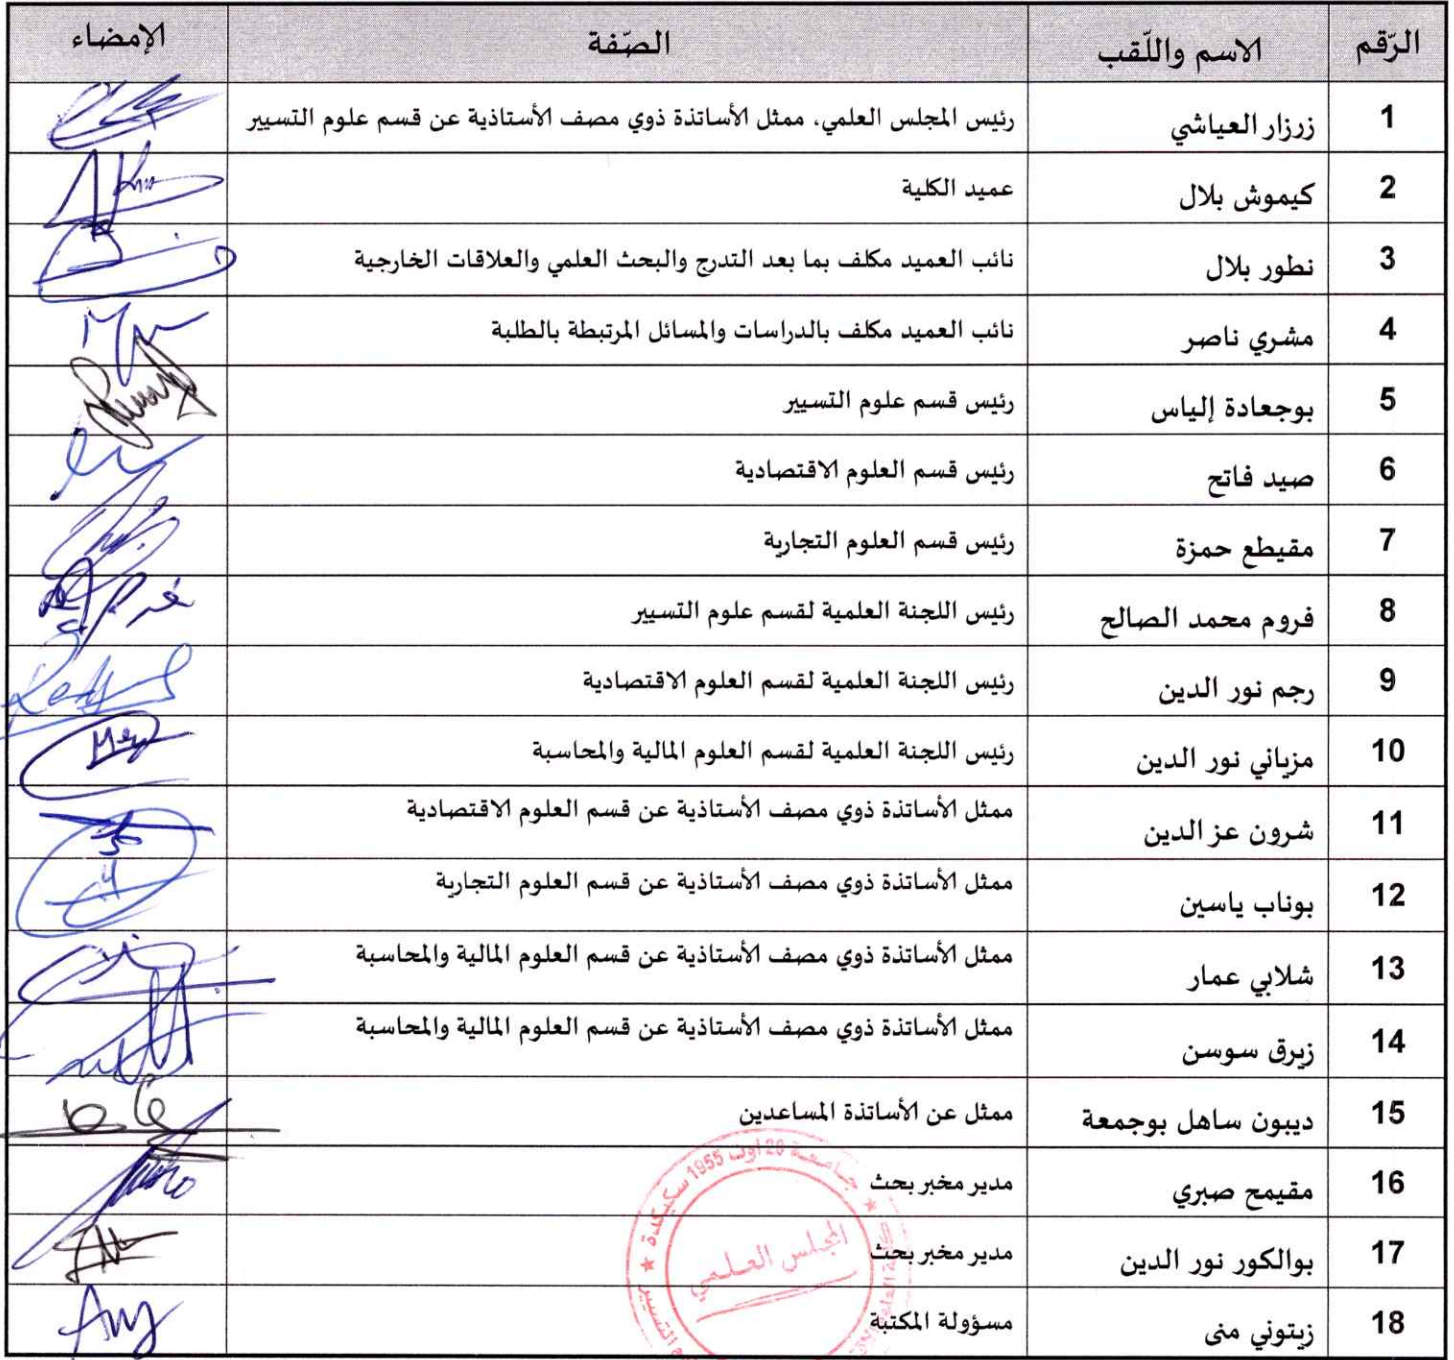 الرّقم الاسم واللّقب الصّفة الإمضاء
1 زرزار العياشي رئيس المجلس العلمي، ممثل الأساتذة ذوي مصف الأستاذية عن قسم علوم التسيير
2 كيموش بلال عميد الكلية
3 نطور بلال نائب العميد مكلف بما بعد التدرج والبحث العلمي والعلاقات الخارجية
4 مشري ناصر نائب العميد مكلف بالدراسات والمسائل المرتبطة بالطلبة
5 بوجعادة إلياس رئيس قسم علوم التسيير
6 صيد فاتح رئيس قسم العلوم الاقتصادية
7 مقيطع حمزة رئيس قسم العلوم التجارية
8 فروم محمد الصالح رئيس اللجنة العلمية لقسم علوم التسيير
9 رجم نور الدين رئيس اللجنة العلمية لقسم العلوم الاقتصادية
10 مزياني نور الدين رئيس اللجنة العلمية لقسم العلوم المالية والمحاسبة
11 شرون عز الدين ممثل الأساتذة ذوي مصف الأستاذية عن قسم العلوم الاقتصادية
12 بوناب ياسين ممثل الأساتذة ذوي مصف الأستاذية عن قسم العلوم التجارية
13 شلابي عمار ممثل الأساتذة ذوي مصف الأستاذية عن قسم العلوم المالية والمحاسبة
14 زيرق سوسن ممثل الأساتذة ذوي مصف الأستاذية عن قسم العلوم المالية والمحاسبة
15 ديبون ساهل بوجمعة ممثل عن الأساتذة المساعدين
16 مقيمح صبري مدير مخبر بحث
17 بوالكور نور الدين مدير مخبر بحث
18 زيتوني منى مسؤولة المكتبة
جامعة 20 أوت 1955 سكيكدة
المجلس العلمي